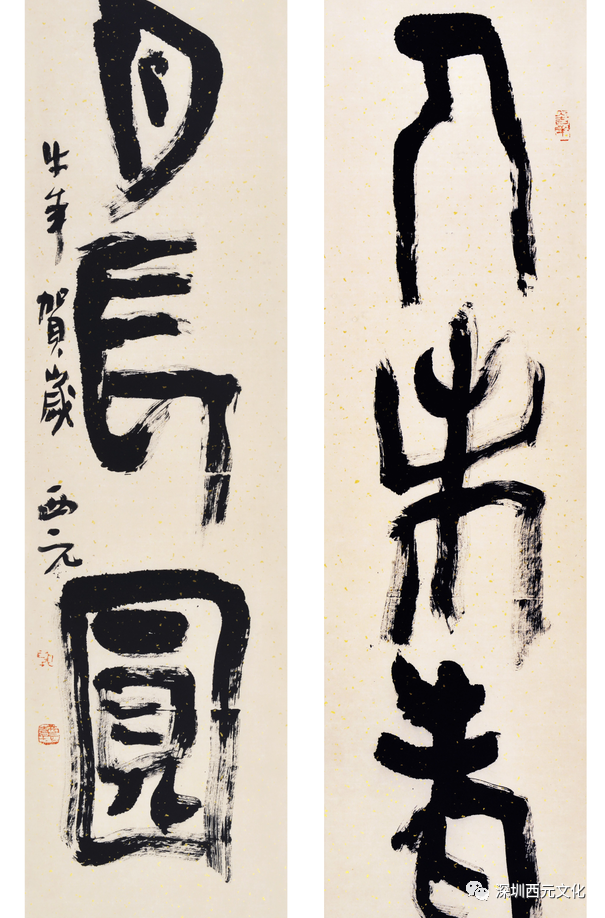 人未老
月長圓
牛年 賀歲 西元
深圳西元文化